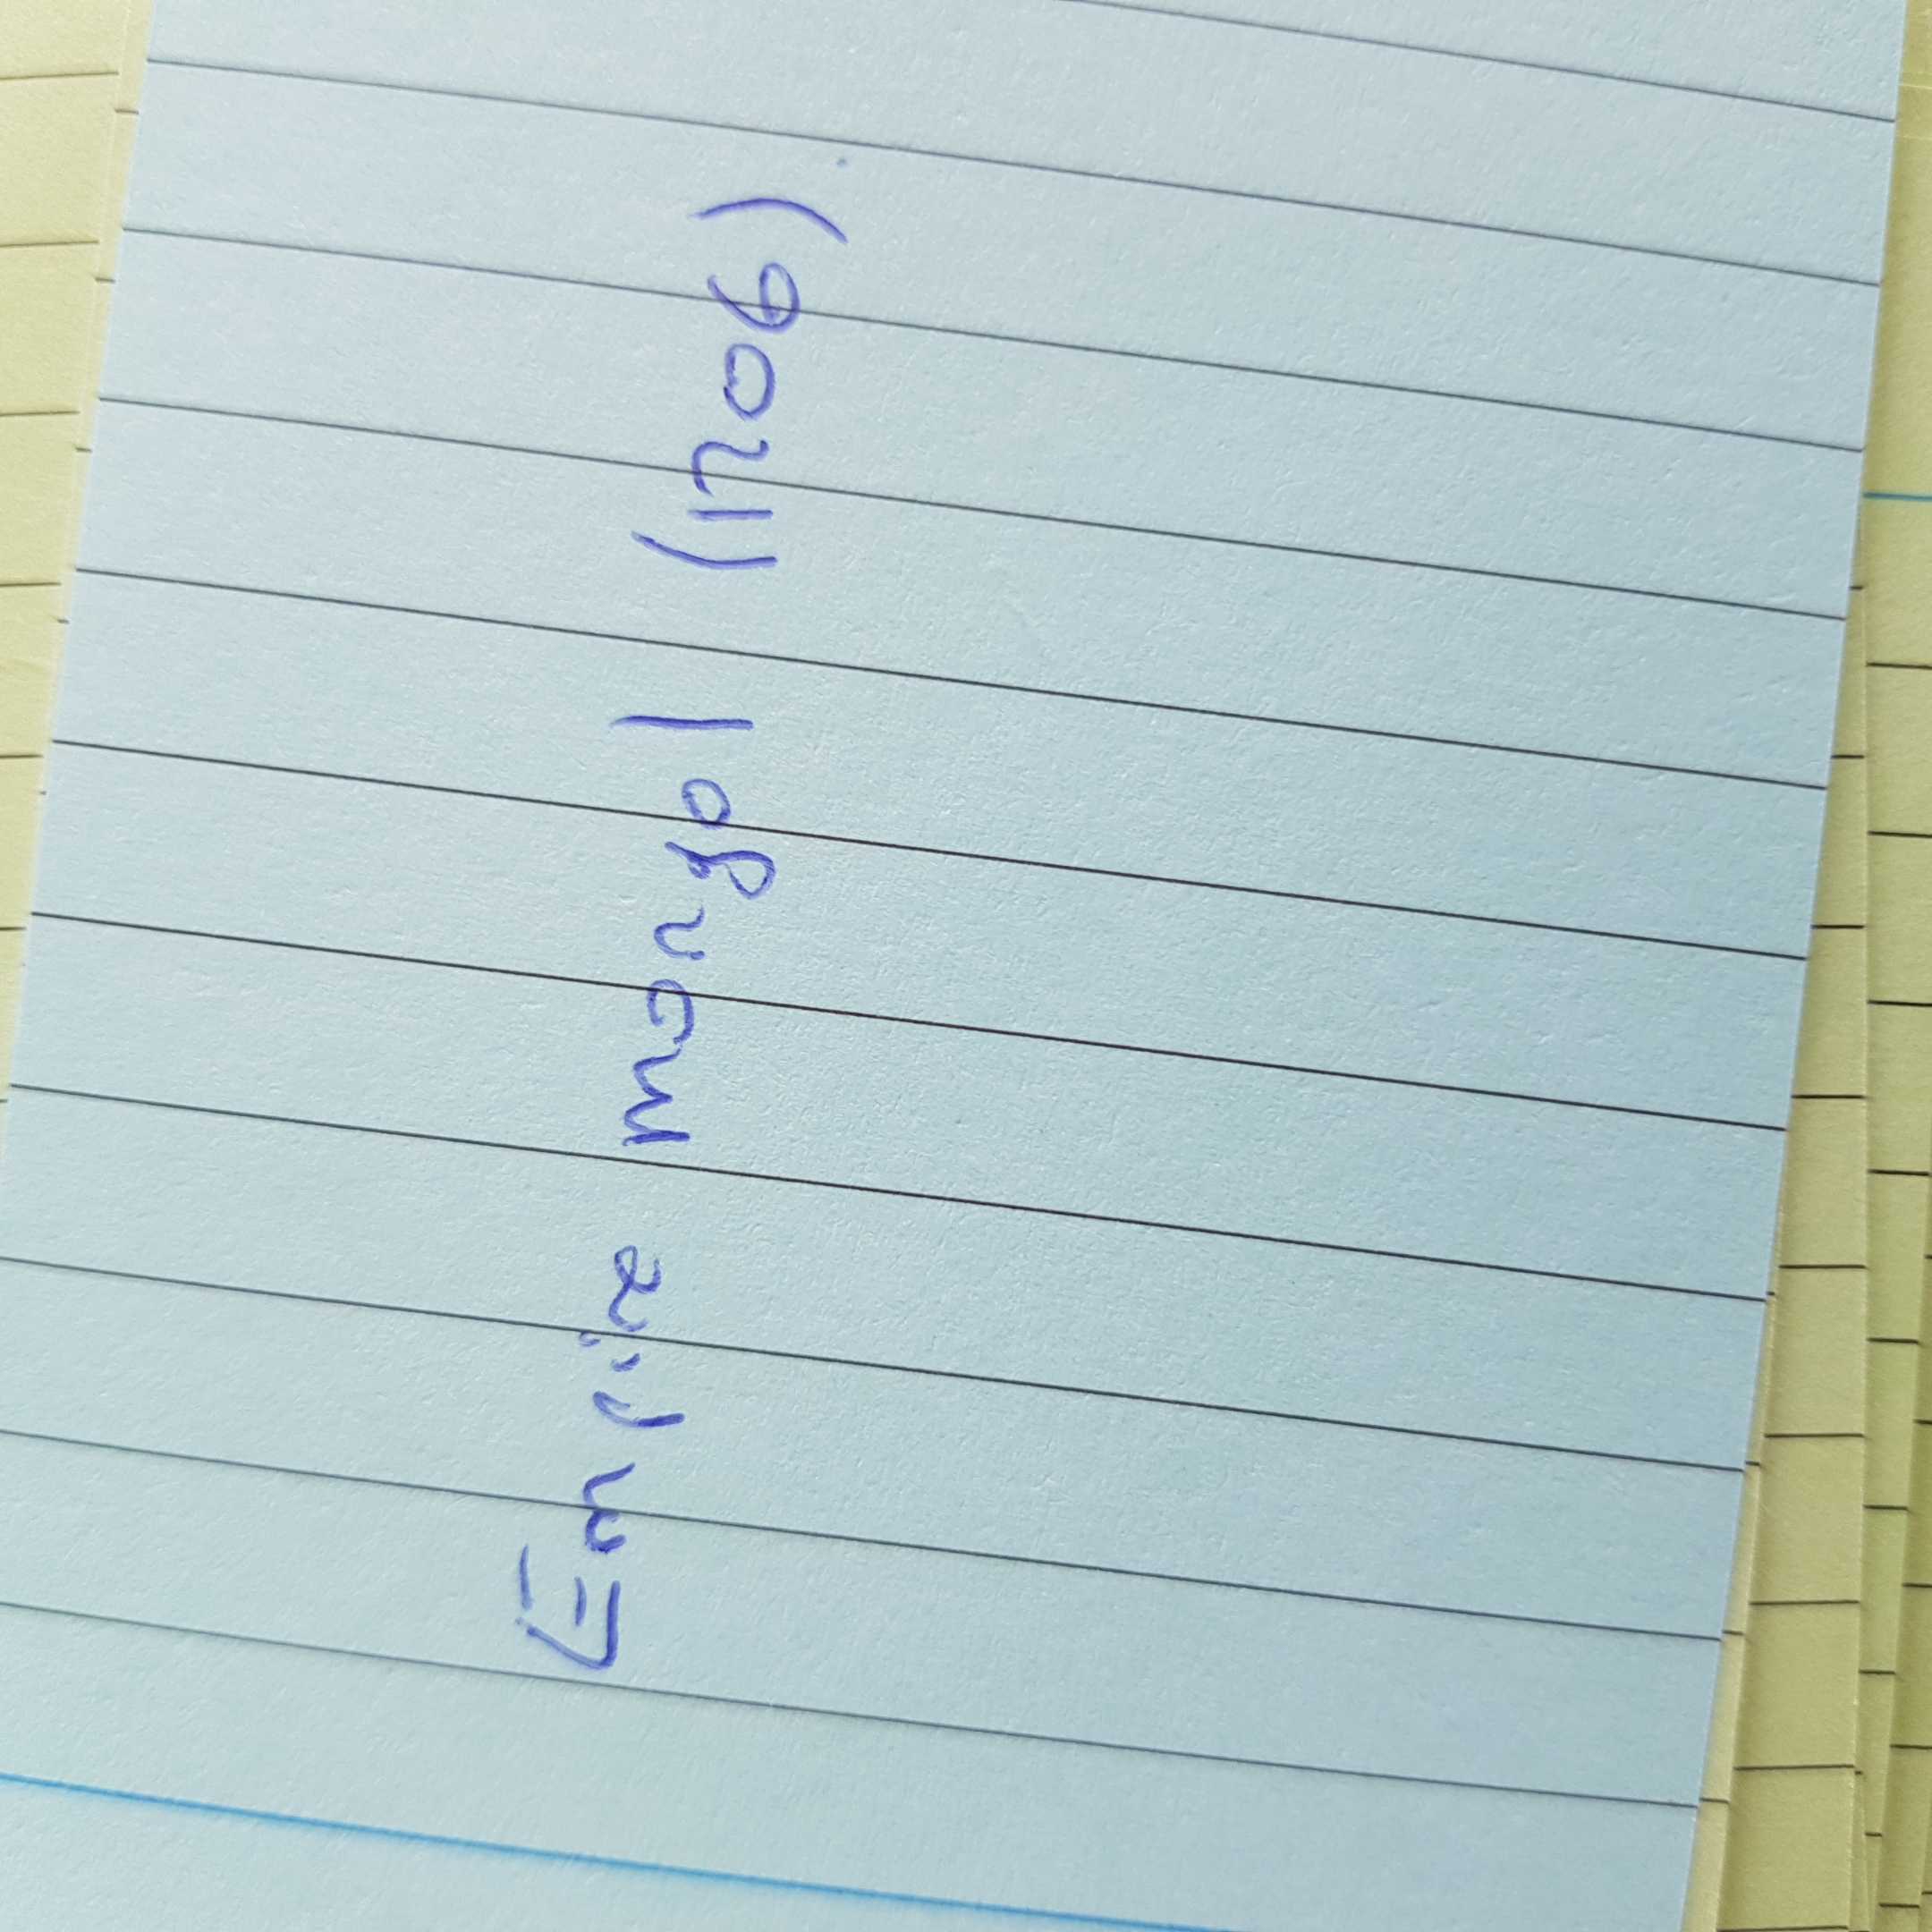 Empire mongol (1206)